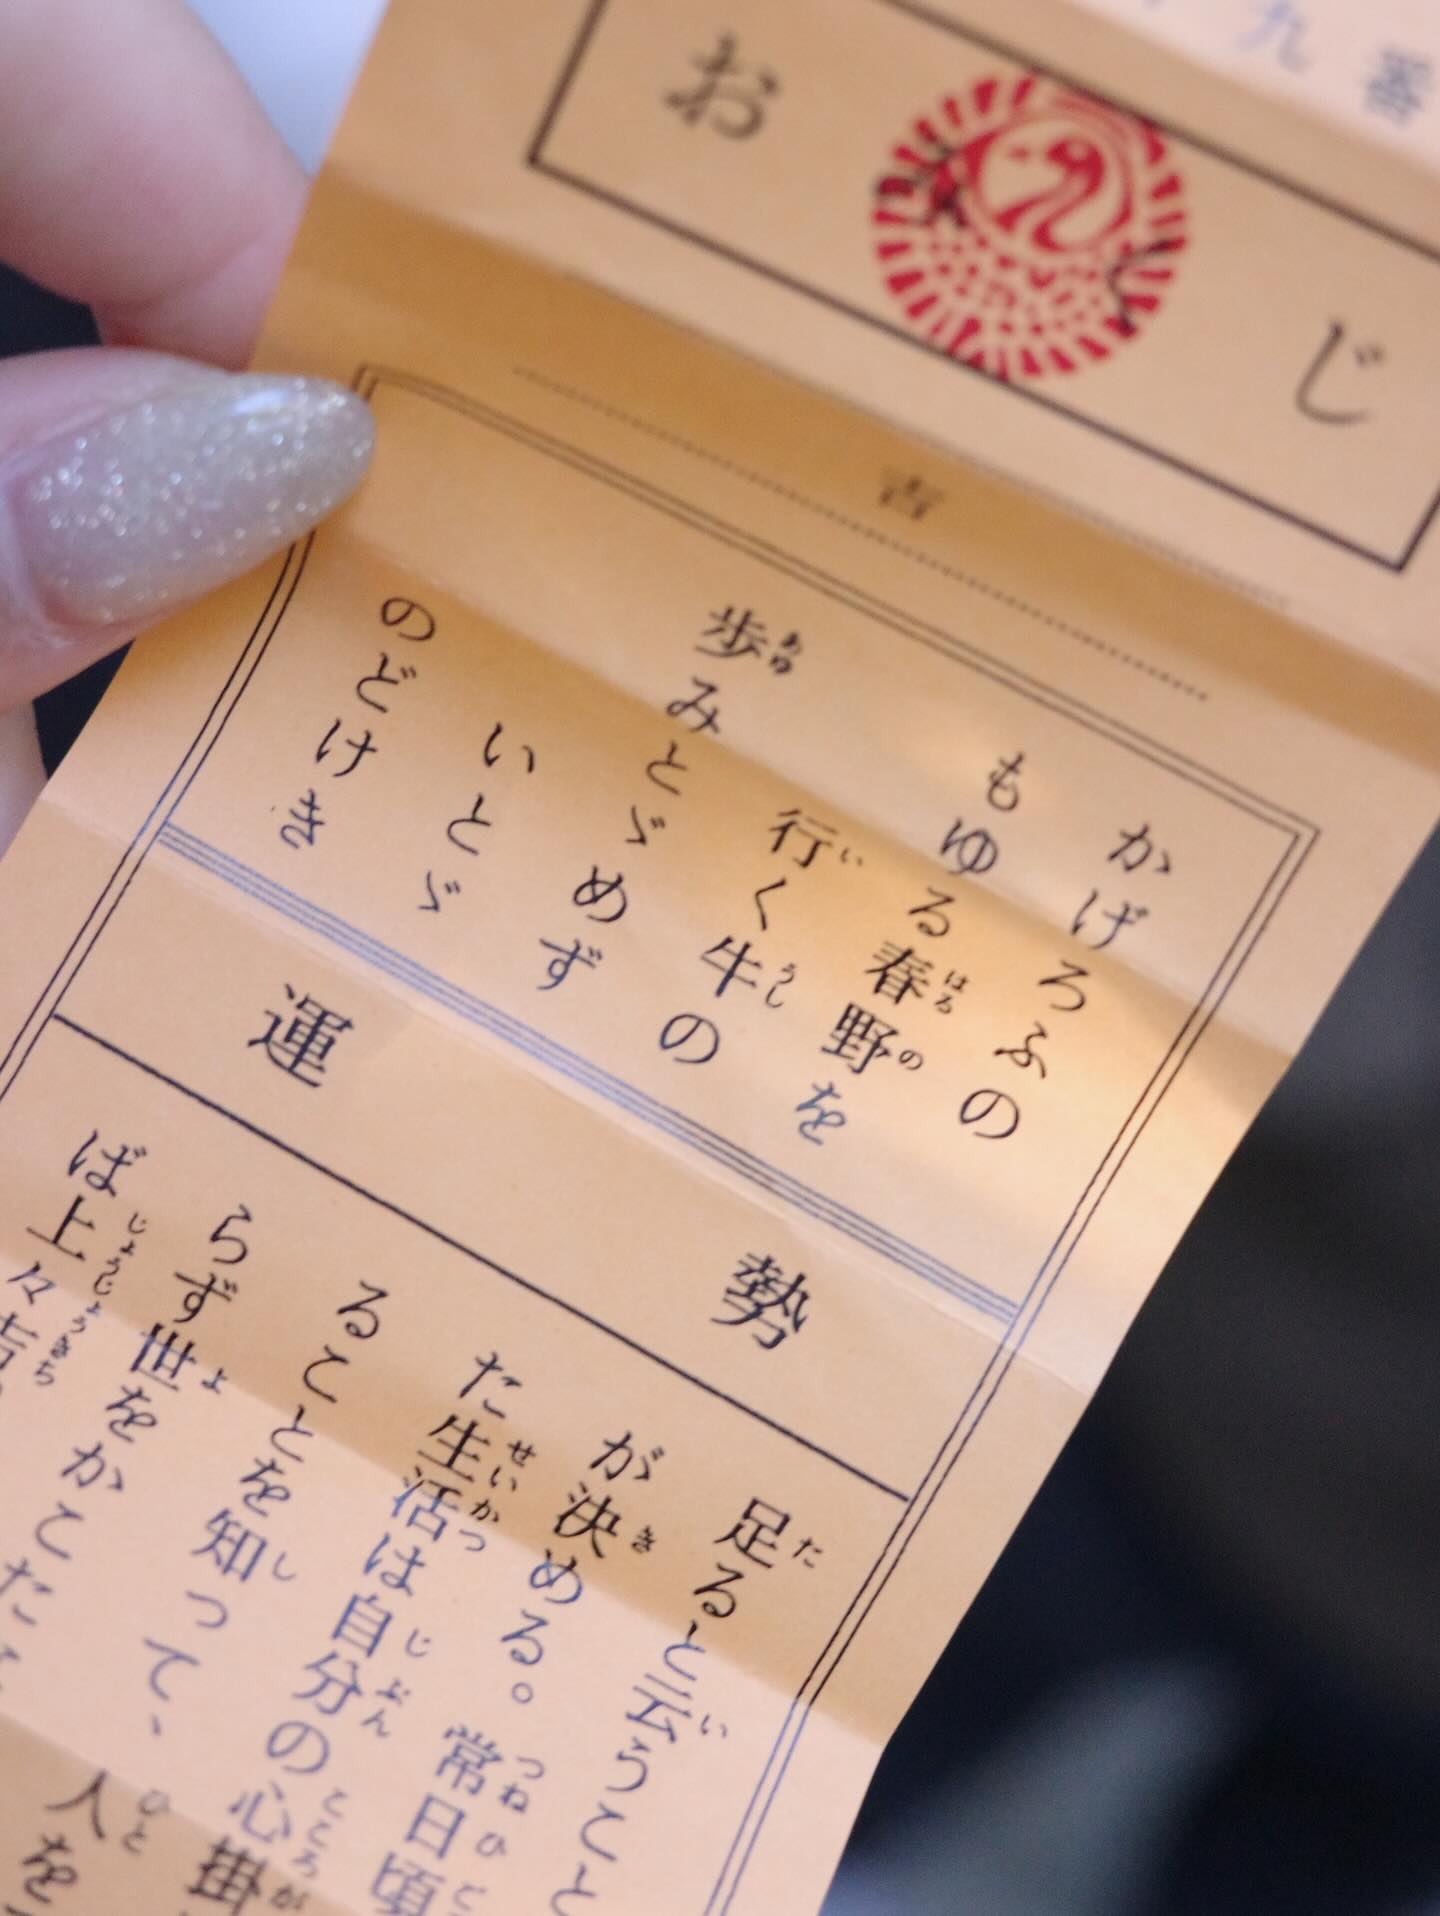 九番
おみくじ
吉
かげろふの
もゆる春野を
行く牛の
歩みとゞめず
いとゞ
のどけき
運勢
足ると云うこと
が決める。常日頃
た生活は自分の心掛
ることを知って、人を
らず世をかこた
ば上々吉